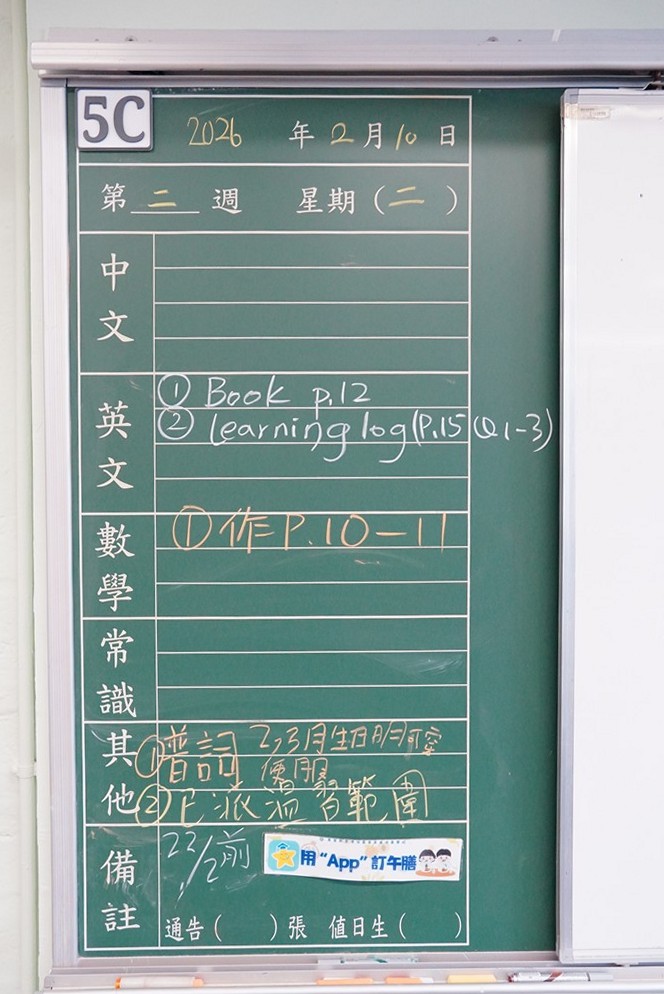 5C
2026 年 2 月 10 日
第 二 週 星期(二)
中文
英文
① Book p.12
② Learning log(P.15 Q1-3)
數學
① 作 P.10-11
常識
其他
① 普詞 2,3月生日明可穿
便服
② 已派溫習範圍
備註
22/2前
用"App"訂午膳
通告( )張 值日生( )